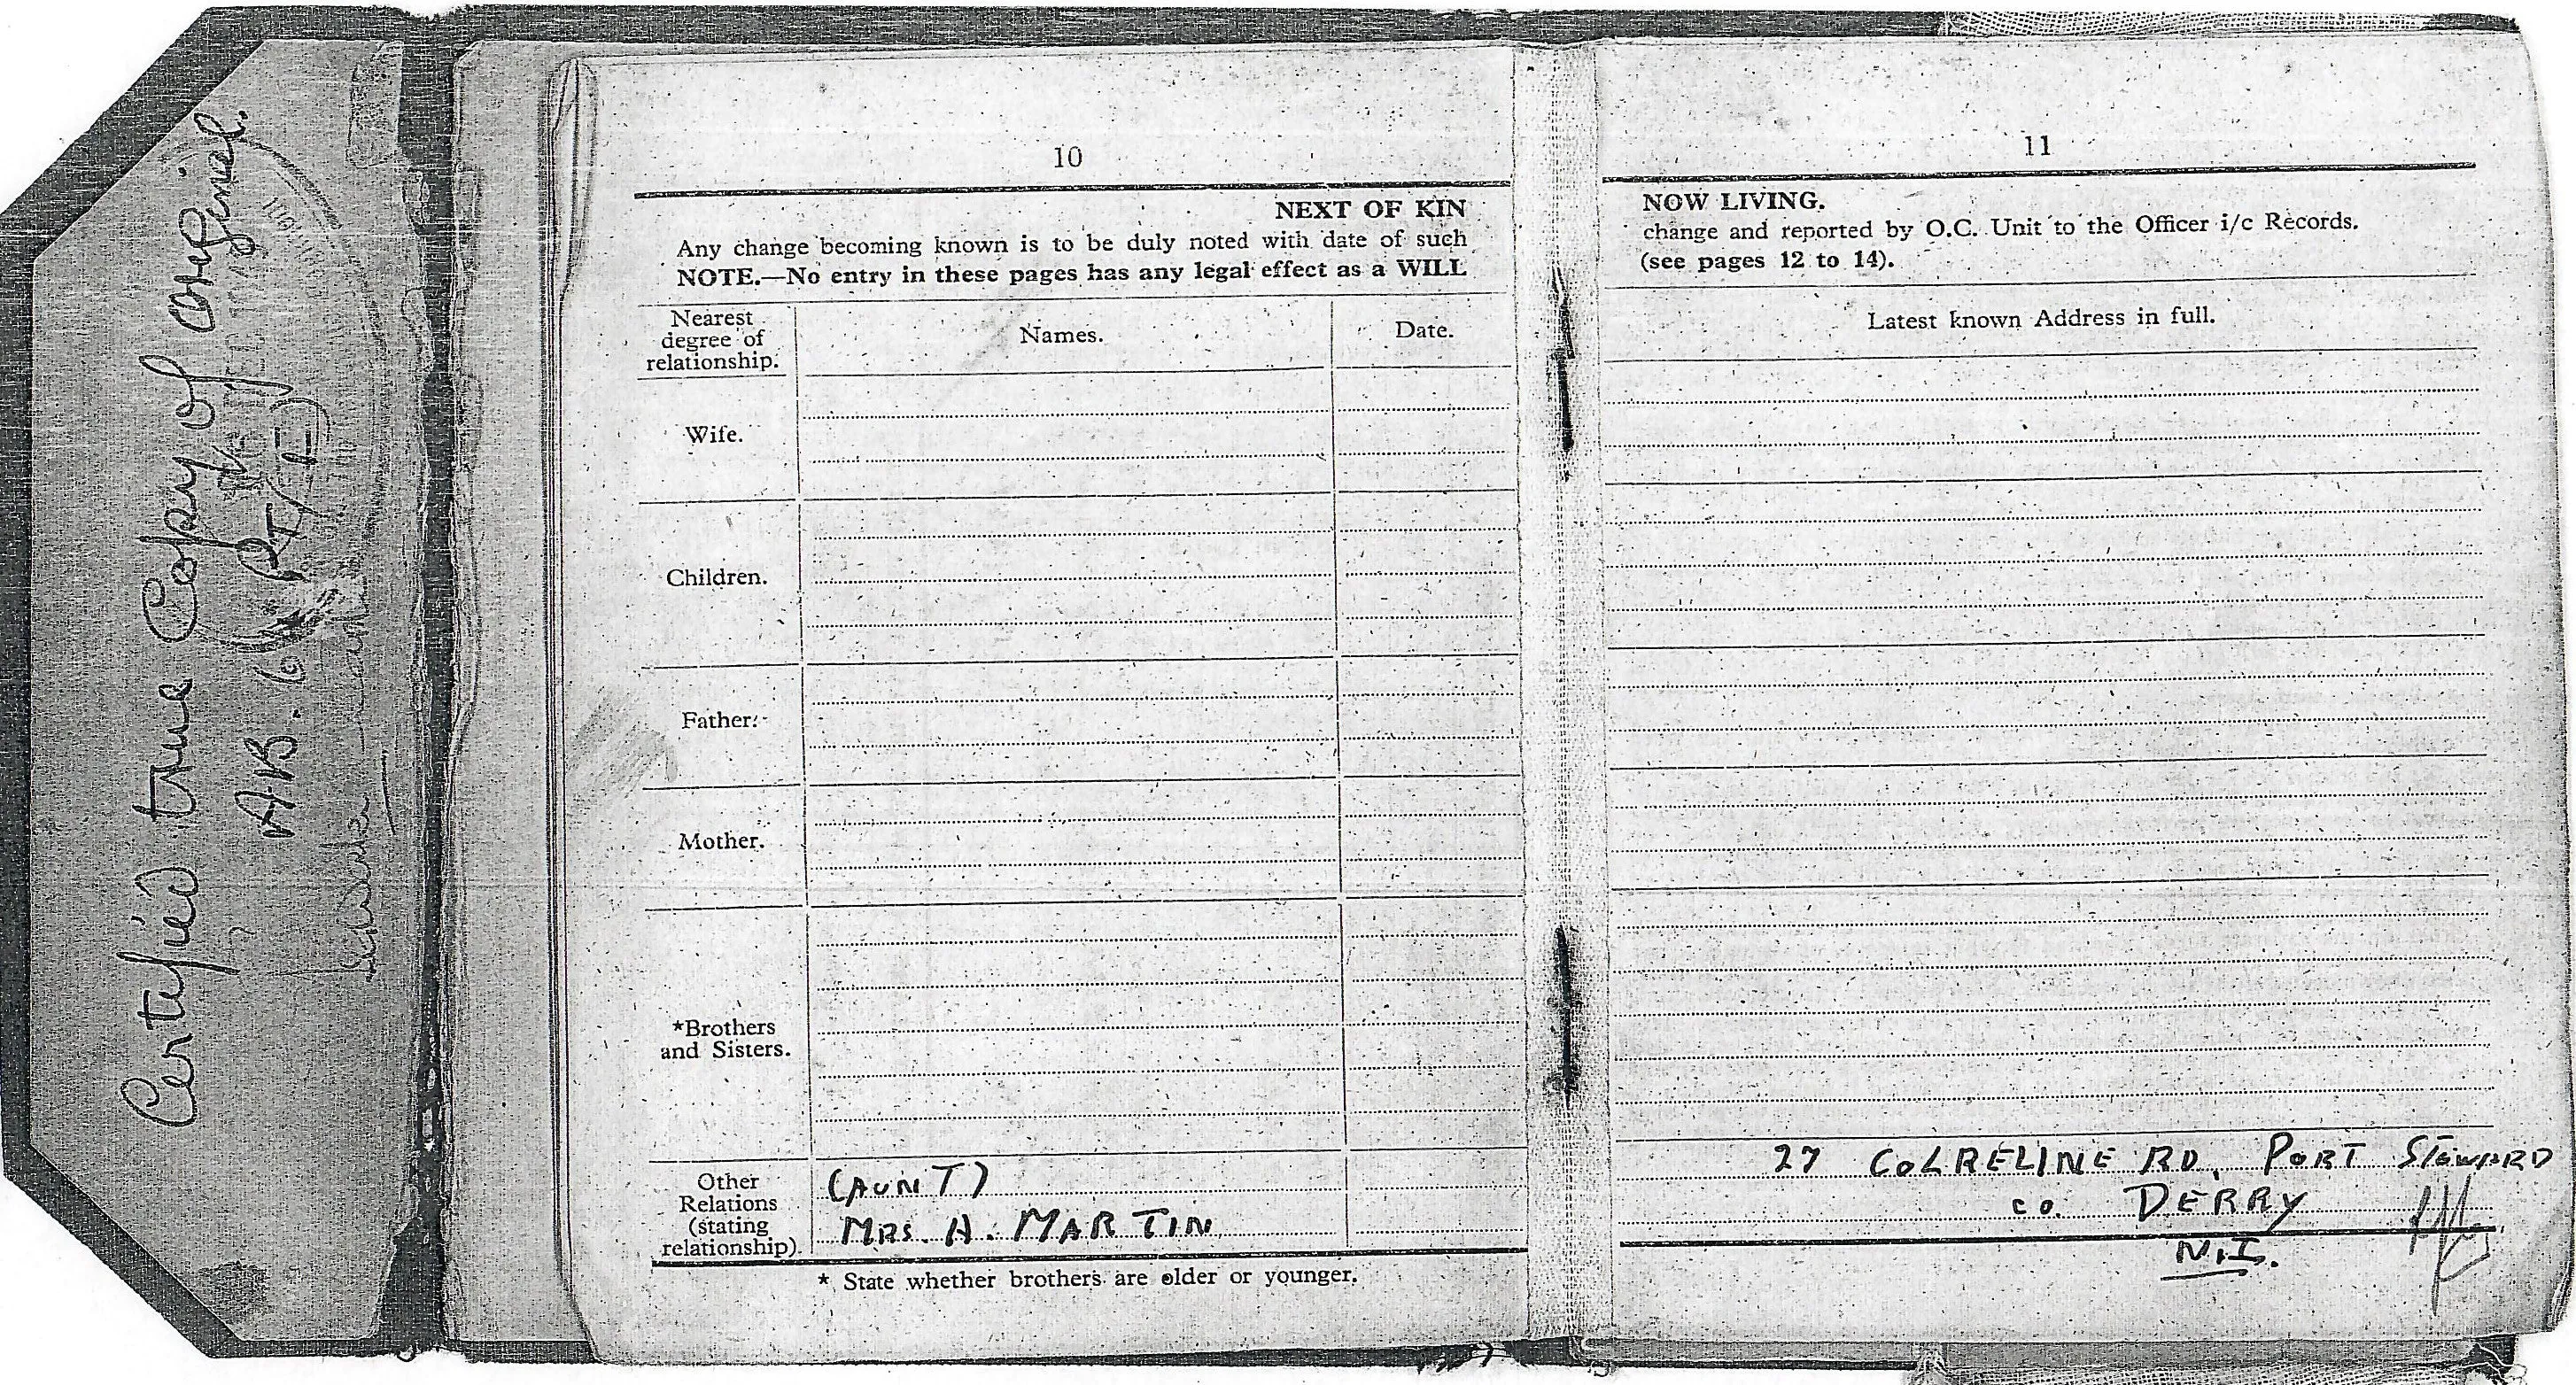 Certified true Copy of original.
AB. 6 (PT I)
10
NEXT OF KIN
Any change becoming known is to be duly noted with date of such
NOTE.—No entry in these pages has any legal effect as a WILL
Nearest
degree of
relationship.
Names.
Date.
Wife.
Children.
Father.
Mother.
*Brothers
and Sisters.
Other
Relations
(stating
relationship).
(AUNT)
MRS. H. MARTIN
* State whether brothers are older or younger.
11
NOW LIVING.
change and reported by O.C. Unit to the Officer i/c Records.
(see pages 12 to 14).
Latest known Address in full.
27 COLRELINE RD, PORT STEWARD
CO. DERRY
N.I.